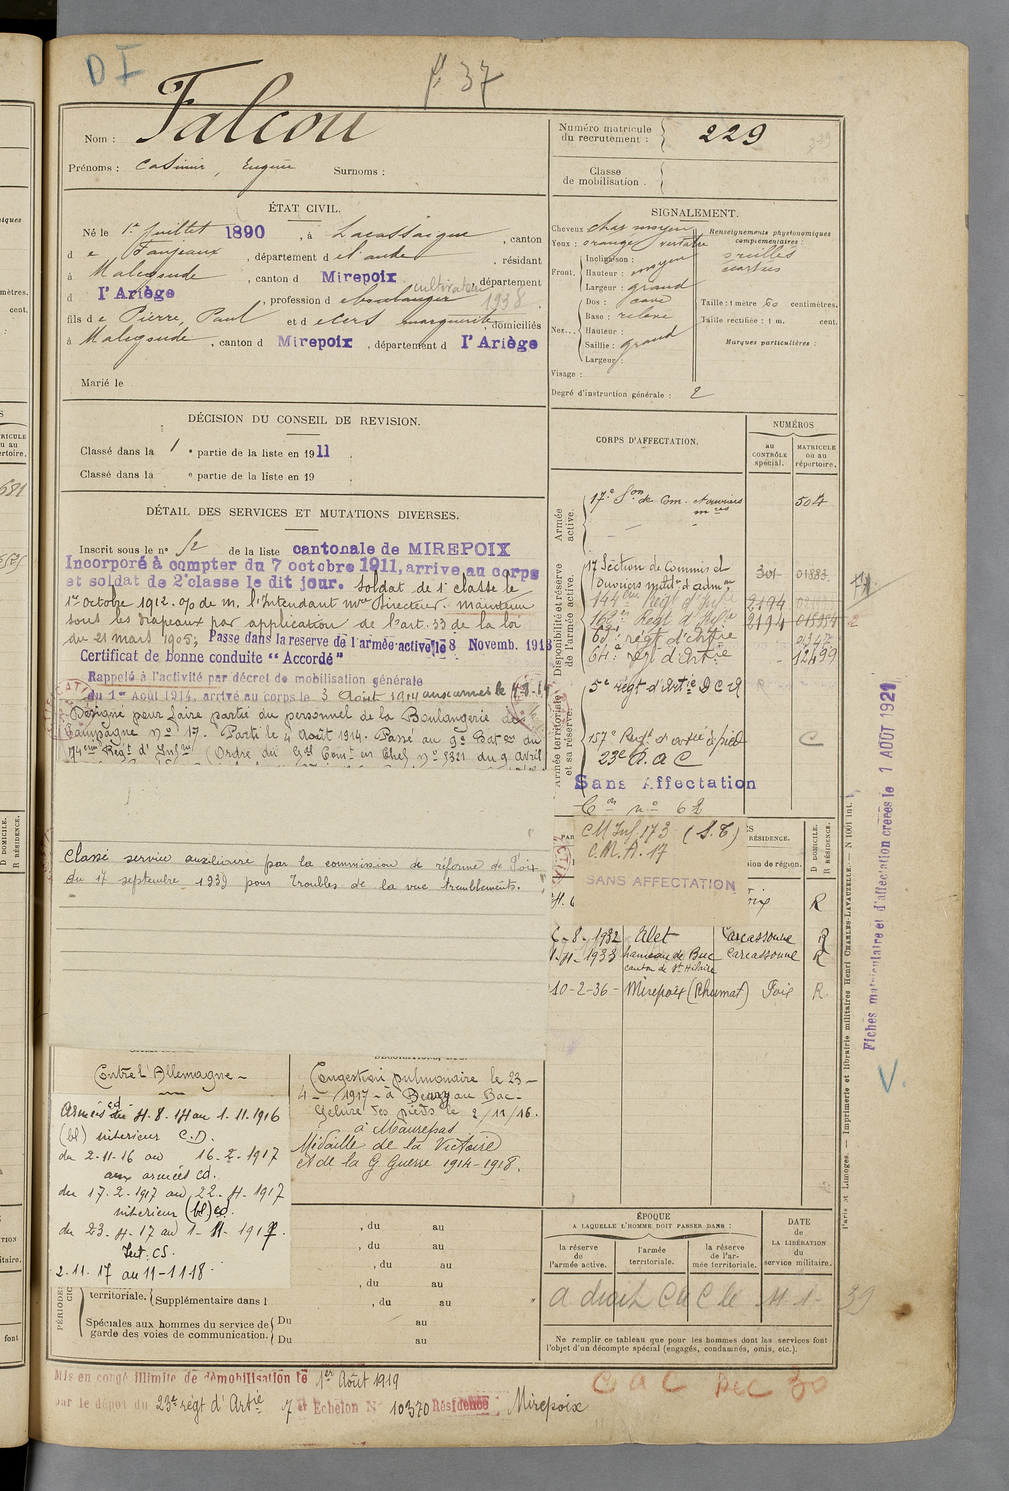 D I
f° 37
Nom : Falcou
Prénoms : Casimir, Eugène Surnoms :
Numéro matricule
du recrutement : 229
Classe
de mobilisation .
ÉTAT CIVIL.
Né le 1er Juillet 1890, à Lacassaigne, canton
de Fanjeaux, département de l'aude, résidant
à Malegoude, canton d Mirepoix, département
d l'Ariège, profession d boulanger cultivateur 1938
fils de Pierre, Paul et de Cers marguerite, domiciliés
à Malegoude, canton d Mirepoix, département d l'Ariège
Marié le
SIGNALEMENT.
Cheveux chat moyen
Yeux : orangé verdâtre
Front. Inclinaison :
Hauteur : moyen
Largeur : grand
Nez. Dos : cave
Base : relevé
Hauteur :
Saillie : grand
Largeur :
Visage :
Renseignements physionomiques
complémentaires :
oreilles
écartées
Taille : 1 mètre 60 centimètres.
Taille rectifiée : 1 m. cent.
Marques particulières :
Degré d'instruction générale : 2
DÉCISION DU CONSEIL DE REVISION.
Classé dans la 1 e partie de la liste en 1911
Classé dans la e partie de la liste en 19
DÉTAIL DES SERVICES ET MUTATIONS DIVERSES.
Inscrit sous le n° 52 de la liste cantonale de MIREPOIX
Incorporé à compter du 7 octobre 1911, arrive au corps
et soldat de 2e classe le dit jour. Soldat de 1e classe le
1er Octobre 1912. o/o de m. l'Intendant mre Directeur. maintenu
sous les drapeaux par application de l'art. 33 de la loi
du 21 mars 1905; Passé dans la reserve de l'armée active, le 8 Novemb. 1913
Certificat de bonne conduite "Accordé"
Rappelé à l'activité par décret de mobilisation générale
du 1er Août 1914, arrivé au corps le 3 Août 1914 aux armées le 4-8-14
Désigné pour faire partie du personnel de la Boulangerie de
Campagne N° 17. Parti le 4 Août 1914. Passé au 9e Baton du
174eme Régt d'Infie (Ordre du Gal Comt en Chef N° 5321 du 9 Avril
Classé service auxiliaire par la commission de réforme de Foix
du 17 septembre 1939 pour troubles de la vue tremblements.
CORPS D'AFFECTATION.
NUMÉROS
au
CONTRÔLE
spécial.
MATRICULE
ou au
répertoire.
Armée
active.
17e Son de Com. et ouvriers
mres 504
Disponibilité et réserve
de l'armée active.
17 Section de Commis et
Ouvriers milit d'admon 301 01883
144eme Régt d'Infie 2194
2194
régt d'Artie
régt d'Artie 12499
Armée territoriale
et sa réserve.
5e régt d'Artie D C A
157e Régt d'artie à pied C
23e B.O.C
Sans Affectation
Con n° 62
CM Inf. 173 (S.8)
C.M.A. 17
SANS AFFECTATION
RÉSIDENCE.
D DOMICILE.
R RÉSIDENCE.
Foix R
8-1932 Alet Carcassonne R
11-1933 hameau de Buc Carcassonne R
canton de St Hilaire
10-2-36 - Mirepoix (Rhumat) Foix R.
Contre l'Allemagne -
Armées cd du 4-8-14 au 1-11-1916
(bl) intérieur C.D.
du 2-11-16 au 16-2-1917
aux armées cd.
du 17-2-1917 au 22-4-1917
intérieur (bl) cd.
du 23-4-17 au 1-11-1917.
Int. CS.
2.11.17 au 11-11-18.
Congestion pulmonaire le 23-
4-1917 - à Beurry au Bac-
Gelure des pieds le 2/11/16.
à Maurepas
Médaille de la Victoire
et de la G Guerre 1914-1918.
, du au
, du au
, du au
, du au
territoriale. Supplémentaire dans l , du au
Spéciales aux hommes du service de
garde des voies de communication.
Du au
Du au
ÉPOQUE
A LAQUELLE L'HOMME DOIT PASSER DANS :
la réserve
de l'armée active.
l'armée
territoriale.
la réserve
de l'ar-
mée territoriale.
DATE
de
LA LIBÉRATION
du
service militaire.
a droit C a C le 11-1-39
Ne remplir ce tableau que pour les hommes dont les services font
l'objet d'un décompte spécial (engagés, condamnés, omis, etc.).
Mis en congé illimité de démobilisation le 1er Août 1919
par le dépot du 23e régt d'Artie 7e Echelon N° 10370 Résidence Mirepoix
C a C Dec 30
Fiches matriculaire et d'affectation créées le 1 AOUT 1921
V.
Paris et Limoges. — Imprimerie et librairie militaires Henri CHARLES-LAVAUZELLE. — N 1001 int.